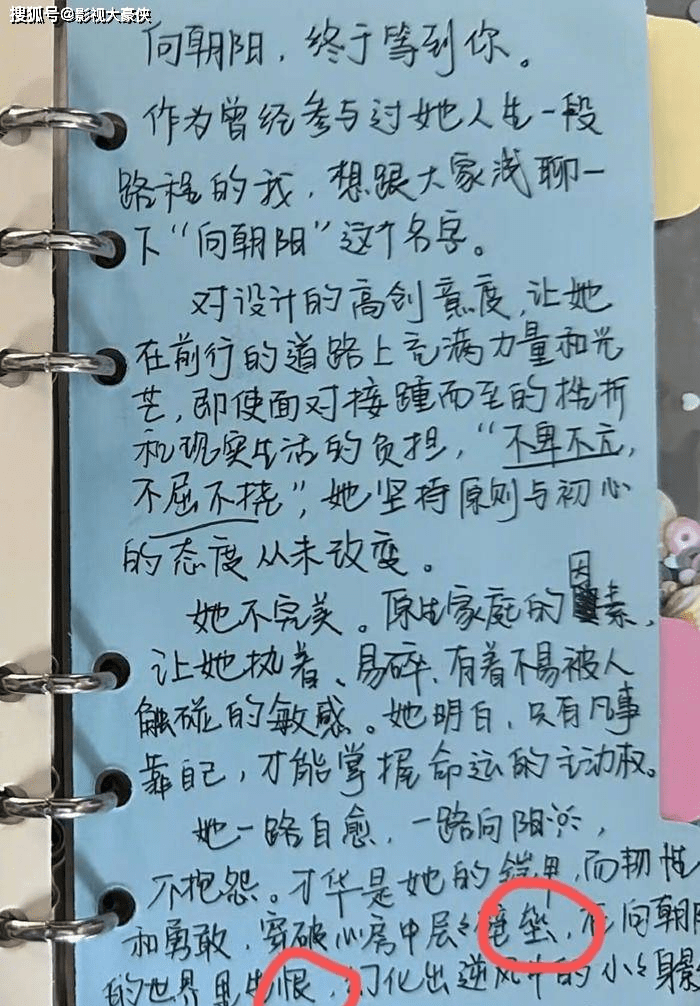 搜狐号@影视大豪侠
向朝阳，终于等到你。
作为曾经参与过她人生一段
路程的我，想跟大家浅聊一
下“向朝阳”这个名字。
对设计的高创意度，让她
在前行的道路上充满力量和光
芒，即使面对接踵而至的挫折
和现实生活的负担，“不卑不亢，
不屈不挠”，她坚持原则与初心
的态度从未改变。
她不完美。原生家庭的因素，
让她执着、易碎、有着不易被人
触碰的敏感。她明白，只有凡事
靠自己，才能掌握命运的主动权。
她一路自愈，一路向阳，
不抱怨。才华是她的铠甲，而韧性
和勇敢，穿破心房中层层，在向朝阳
的世界里生恨，幻化出逆风中的小小身影